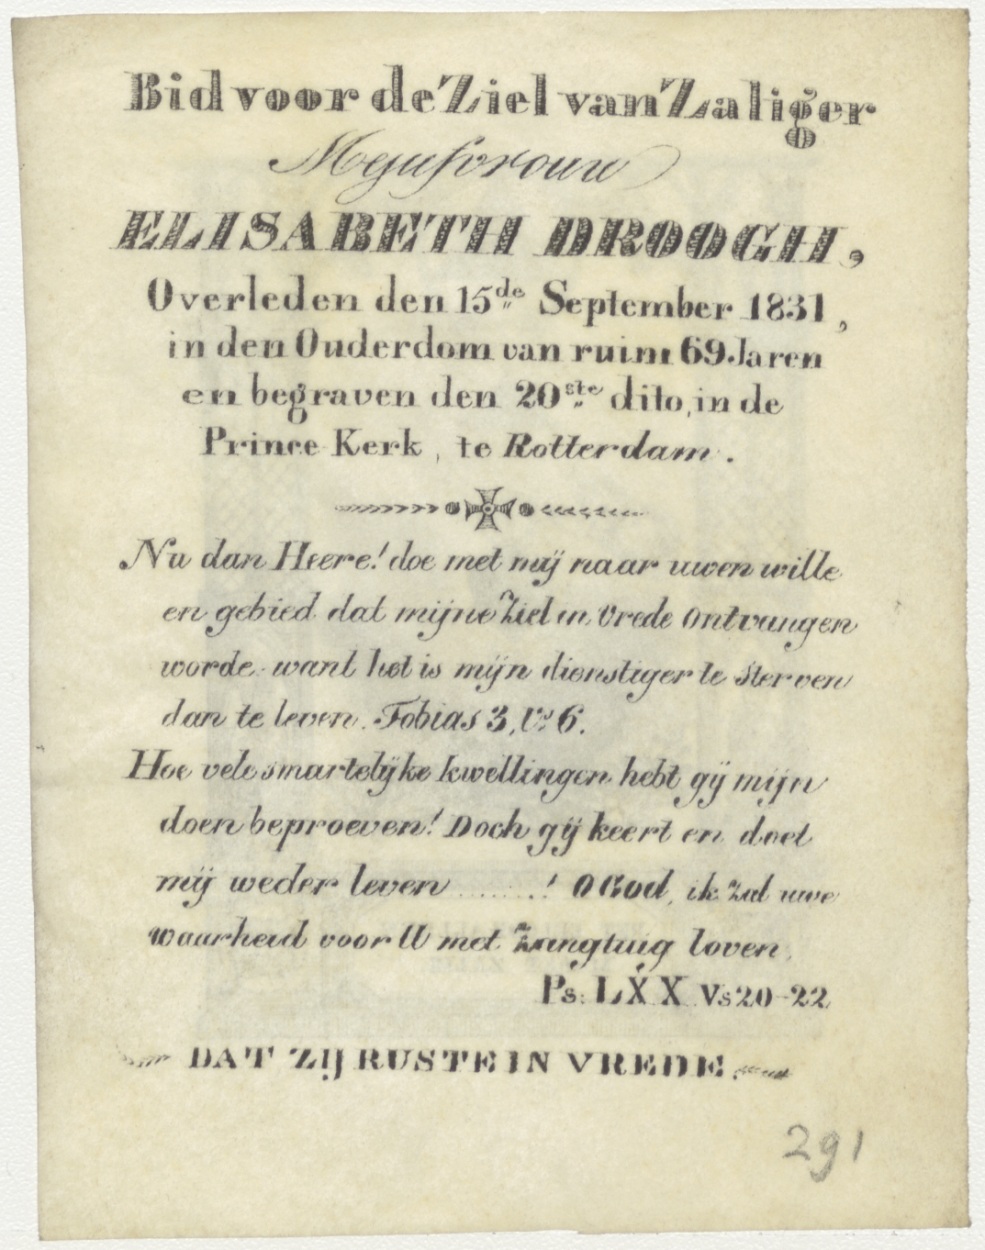 Bid voor de Ziel van Zaliger
Mejufvrouw
ELISABETH DROOGH,
Overleden den 15de September 1831,
in den Ouderdom van ruim 69 Jaren
en begraven den 20ste dito, in de
Prince Kerk, te Rotterdam.
Nu dan Heere! doe met mij naar uwen wille
en gebied dat mijne Ziel in Vrede Ontvangen
worde want het is mijn dienstiger te Sterven
dan te leven. Tobias 3, Vs 6.
Hoe vele smartelijke kwellingen hebt gij mijn
doen beproeven! Doch gij keert en doet
mij weder leven .......! O God, ik zal uwe
waarheid voor U met Zangtuig loven,
Ps: LXX Vs 20-22
DAT ZIJ RUSTE IN VREDE.
291